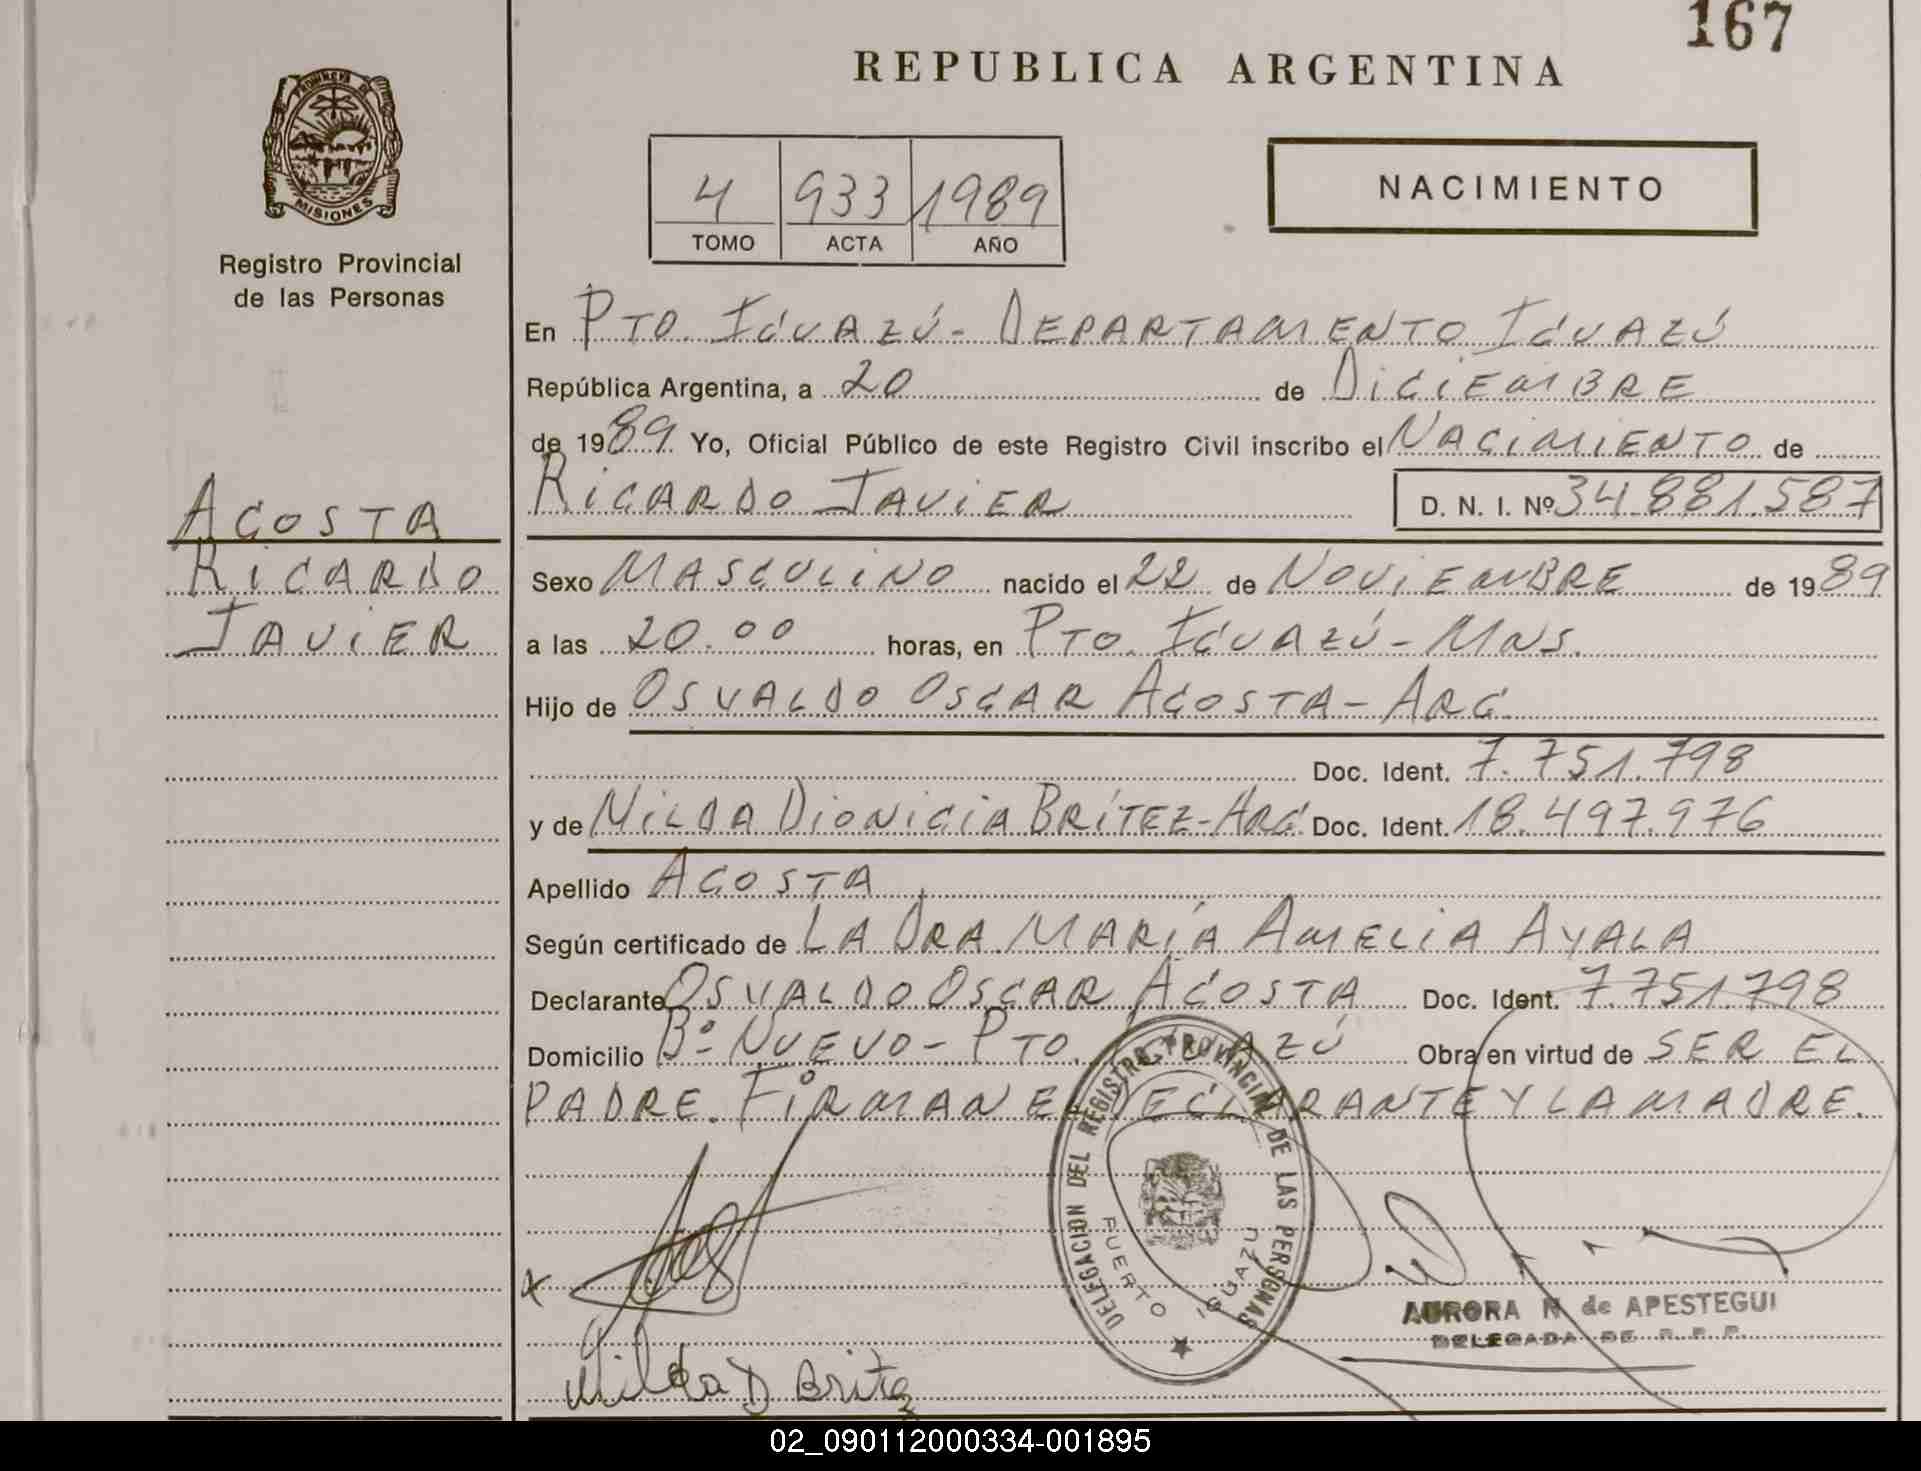 167
REPUBLICA ARGENTINA
PROVINCIA DE
MISIONES
Registro Provincial
de las Personas
4 933 1989
TOMO ACTA AÑO
NACIMIENTO
En PTO. IGUAZÚ - DEPARTAMENTO IGUAZÚ
República Argentina, a 20 de DICIEMBRE
de 1989. Yo, Oficial Público de este Registro Civil inscribo el NACIMIENTO de
RICARDO JAVIER D. N. I. Nº 34.881.587
ACOSTA
RICARDO
JAVIER
Sexo MASCULINO nacido el 22 de NOVIEMBRE de 1989
a las 20.00 horas, en PTO. IGUAZÚ - MNS.
Hijo de OSVALDO OSCAR ACOSTA - ARG
Doc. Ident. 7.751.798
y de NILDA DIONICIA BRÍTEZ - ARG. Doc. Ident. 18.497.976
Apellido ACOSTA
Según certificado de LA DRA. MARÍA AMELIA AYALA
Declarante OSVALDO OSCAR ACOSTA Doc. Ident. 7.751.798
Domicilio Bº NUEVO - PTO. IGUAZÚ Obra en virtud de SER EL
PADRE. FIRMAN EL DECLARANTE Y LA MADRE.
DELEGACION DEL REGISTRO PROVINCIAL DE LAS PERSONAS
PUERTO IGUAZU
AURORA N de APESTEGUI
DELEGADA DE R. P. P.
Nilda D Britez
02_090112000334-001895